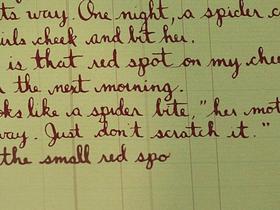 ts way. One night, a spider c
irls cheek and bit her.
is that red spot on my chee
r the next morning.
oks like a spider bite," her mot
way. Just don't scratch it."
the small red spo